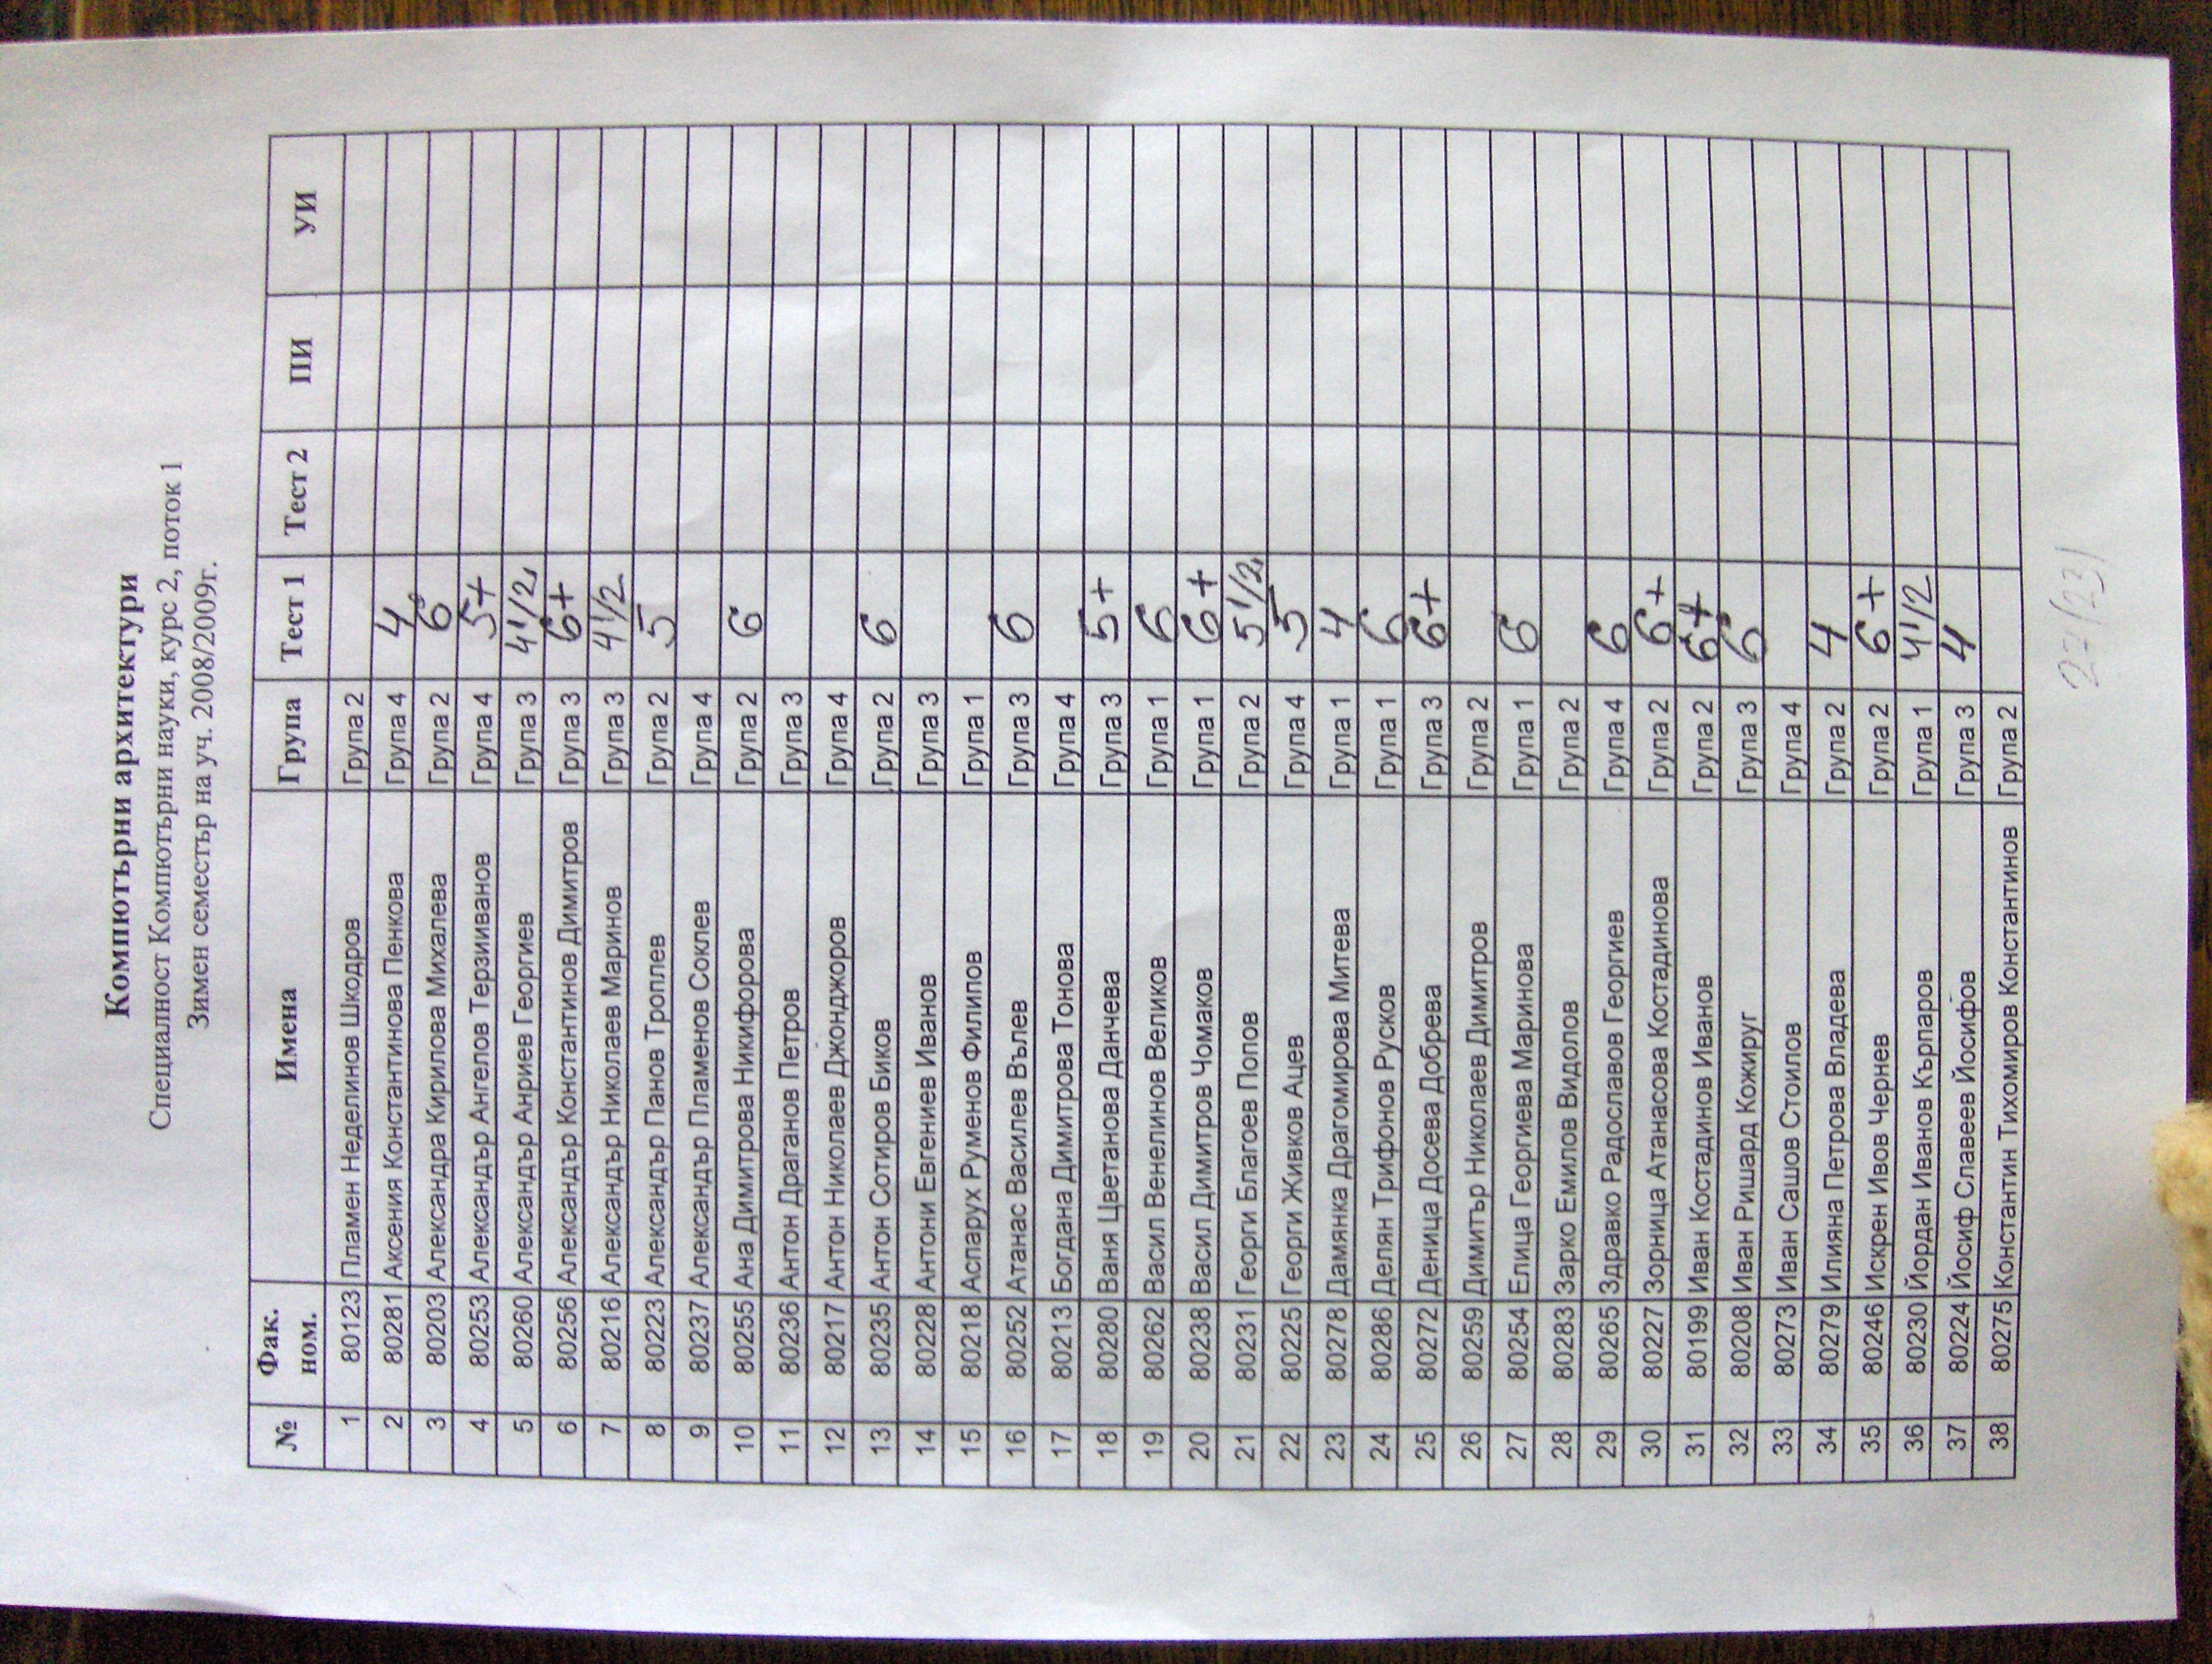 Компютърни архитектури
Специалност Компютърни науки, курс 2, поток 1
Зимен семестър на уч. 2008/2009г.
№ Фак. ном. Имена Група Тест 1 Тест 2 ПИ УИ
1 80123 Пламен Неделинов Шкодров Група 2
2 80281 Аксения Константинова Пенкова Група 4 4
3 80203 Александра Кирилова Михалева Група 2 6
4 80253 Александър Ангелов Терзииванов Група 4 5+
5 80260 Александър Анриев Георгиев Група 3 4 1/2
6 80256 Александър Константинов Димитров Група 3 6+
7 80216 Александър Николаев Маринов Група 3 4 1/2
8 80223 Александър Панов Троплев Група 2 5
9 80237 Александър Пламенов Соклев Група 4
10 80255 Ана Димитрова Никифорова Група 2 6
11 80236 Антон Драганов Петров Група 3
12 80217 Антон Николаев Джонджоров Група 4
13 80235 Антон Сотиров Биков Група 2 6
14 80228 Антони Евгениев Иванов Група 3
15 80218 Аспарух Руменов Филипов Група 1
16 80252 Атанас Василев Вълев Група 3 6
17 80213 Богдана Димитрова Тонова Група 4
18 80280 Ваня Цветанова Данчева Група 3 5+
19 80262 Васил Венелинов Великов Група 1 6
20 80238 Васил Димитров Чомаков Група 1 6+
21 80231 Георги Благоев Попов Група 2 5 1/2
22 80225 Георги Живков Ацев Група 4 5
23 80278 Дамянка Драгомирова Митева Група 1 4
24 80286 Делян Трифонов Русков Група 1 6
25 80272 Деница Досева Добрева Група 3 6+
26 80259 Димитър Николаев Димитров Група 2
27 80254 Елица Георгиева Маринова Група 1 6
28 80283 Зарко Емилов Видолов Група 2
29 80265 Здравко Радославов Георгиев Група 4 6
30 80227 Зорница Атанасова Костадинова Група 2 6+
31 80199 Иван Костадинов Иванов Група 2 6+
32 80208 Иван Ришард Кожируг Група 3 6
33 80273 Иван Сашов Стоилов Група 4
34 80279 Илияна Петрова Владева Група 2 4
35 80246 Искрен Ивов Чернев Група 2 6+
36 80230 Йордан Иванов Кърпаров Група 1 4 1/2
37 80224 Йосиф Славеев Йосифов Група 3 4
38 80275 Константин Тихомиров Константинов Група 2